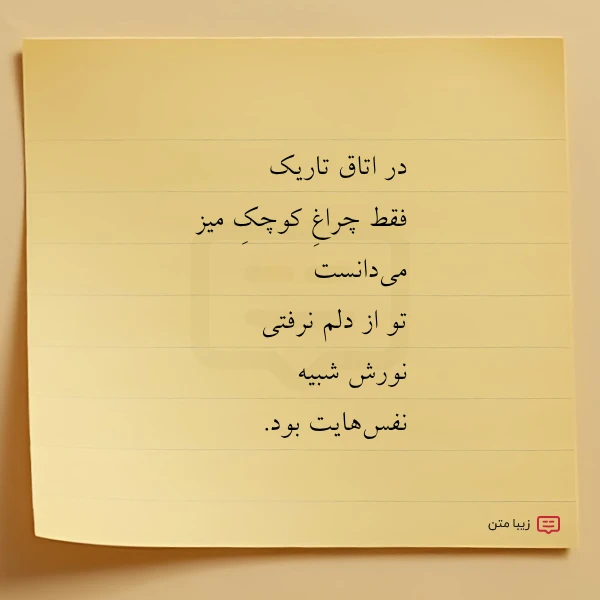 در اتاق تاریک
فقط چراغِ کوچکِ میز
می‌دانست
تو از دلم نرفتی
نورش شبیه
نفس‌هایت بود.
زیبا متن